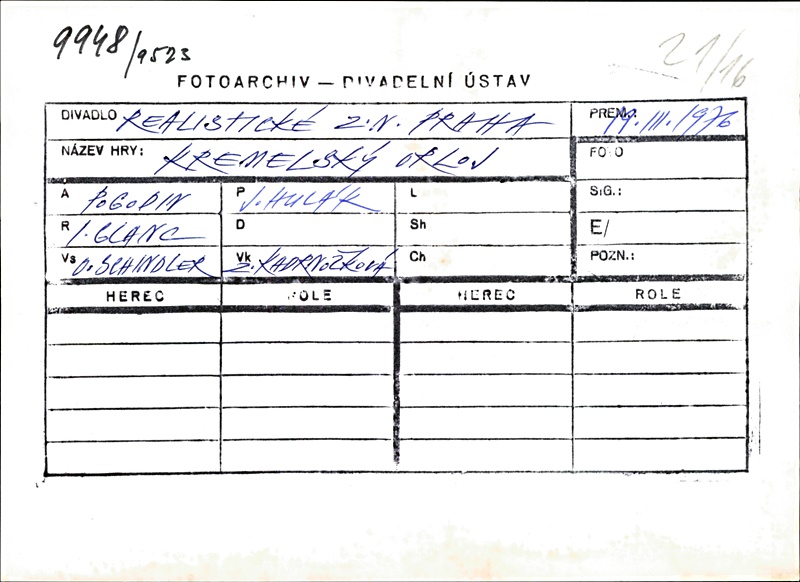 9948/9523
21/16
FOTOARCHIV — DIVADELNÍ ÚSTAV
DIVADLO REALISTICKÉ Z.N. PRAHA PREM.: 19. III. 1976
NÁZEV HRY: KREMELSKÝ ORLOJ FOTO
A POGODIN P J. HULÁK L SIG.:
R I. GLANC D Sh E/
Vs O. SCHINDLER Vk Z. KADRNOŽKOVÁ Ch POZN.:
HEREC ROLE HEREC ROLE